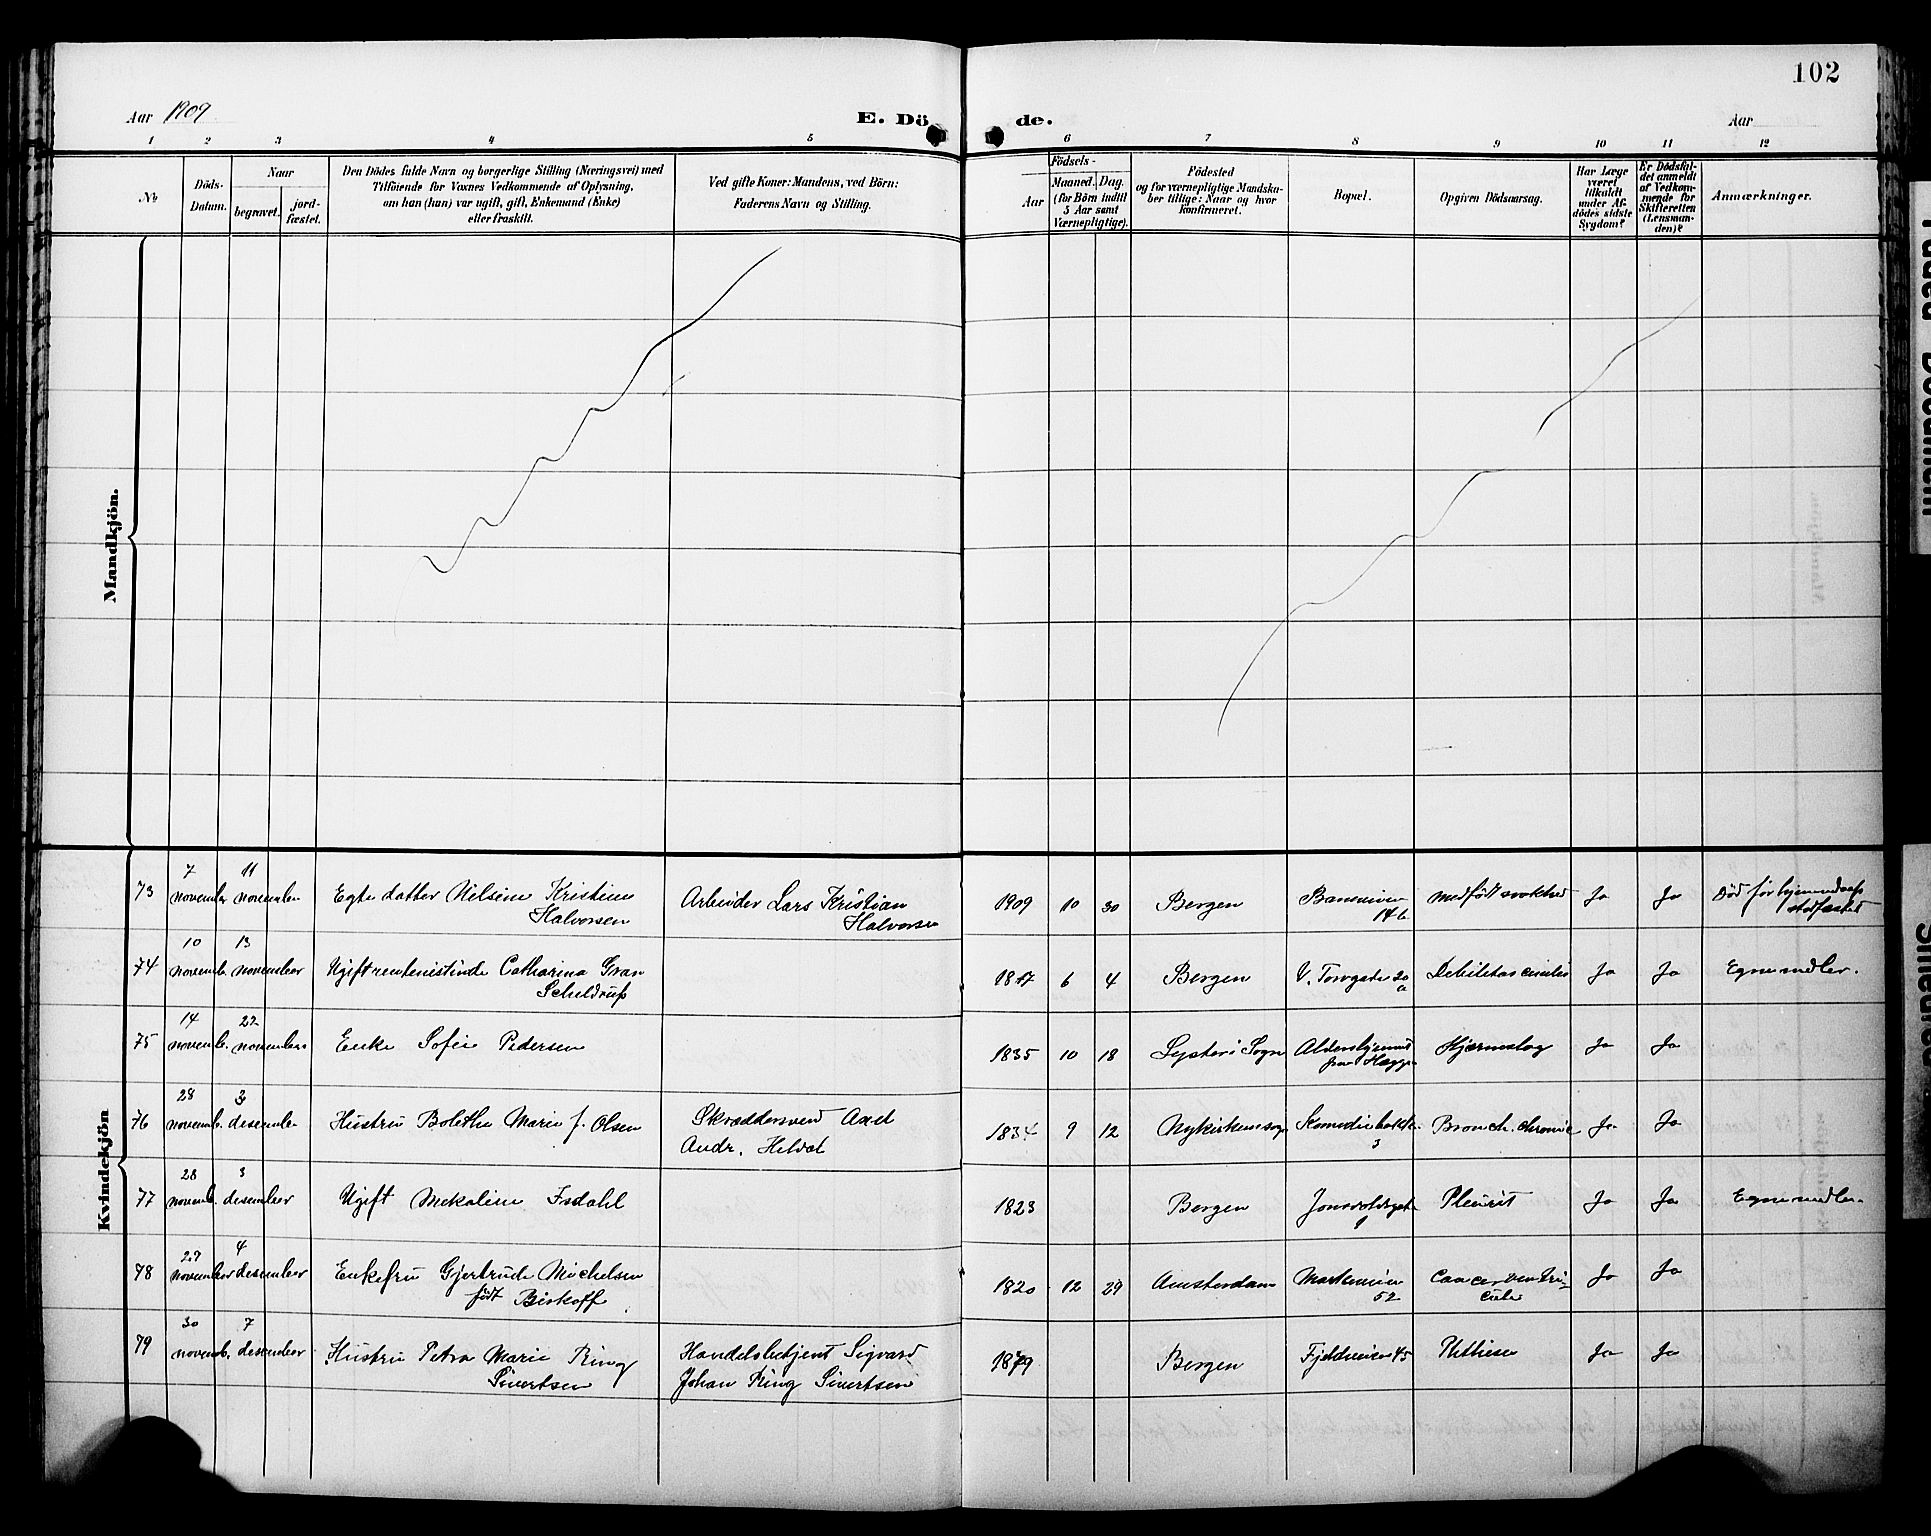 102
Aar 1909
E. Dö de.
Aar
1 2 3 4 5 6 7 8 9 10 11 12
No
Döds-
Datum.
Naar
begravet.
jord-
fæstet.
Den Dödes fulde Navn og borgerlige Stilling (Næringsvei) med
Tilföiende for Voxnes Vedkommende af Oplysning,
om han (hun) var ugift, gift, Enkemand (Enke)
eller fraskilt.
Ved gifte Koner: Mandens, ved Börn:
Faderens Navn og Stilling.
Födsels-
Aar
Maaned. Dag.
(for Börn indtil
5 Aar samt
Værnepligtige).
Födested
og for værnepligtige Mandska-
ber tillige: Naar og hvor
konfirmeret.
Bopæl.
Opgiven Dödsaarsag.
Har Læge
været
tilkaldt
under Af-
dödes sidste
Sygdom?
Er Dödsfal-
det anmeldt
af Vedkom-
mende for
Skifteretten
(Lensman-
den)?
Anmærkninger.
Mandkjön.
Kvindekjön
73 7 november 11 november Egte datter Nilsine Kristine
Halvorsen
Arbeider Lars Kristian
Halvorsen
1909 10 30 Bergen 14 b medfödt svakhed Ja Ja Död för hjemmedaab
stadfæstet
74 10 novemb. 13 november Ugift rentenistinde Catharina Gran
Scheldrup
1817 6 4 Bergen V. Torvgate 20
a
Debilitas Ja Ja Egne midler.
75 14 novemb. 22 november Enke Sofie Pedersen
1835 10 18 Lyster i Sogn Aldershjemmet
Hjærneslag Ja Ja
76 28 novemb. 3 desember Hustru Bolethe Marie f. Olsen
Skræddersvend Axel
Andr. Heldal
1834 9 12 Nykirkensogn Komediebakke
3
Bronch. chronic Ja Ja
77 28 novemb. 3 desember Ugift Mekaline Isdahl
1823 Bergen
9
Pleurit Ja Ja Egne midler.
78 29 november 4 desember Enkefru Gjertrude Michelsen
födt Biskoff
1820 12 29 Amsterdam Markeveien
52
Cancer ventri-
culi
Ja Ja
79 30 novemb. 7 desember Hustru Petra Marie Ring
Sivertsen
Handelsbetjent Sigvard
Johan Ring Sivertsen
1879 Bergen Fjeldveien 45 Phthisis Ja Ja